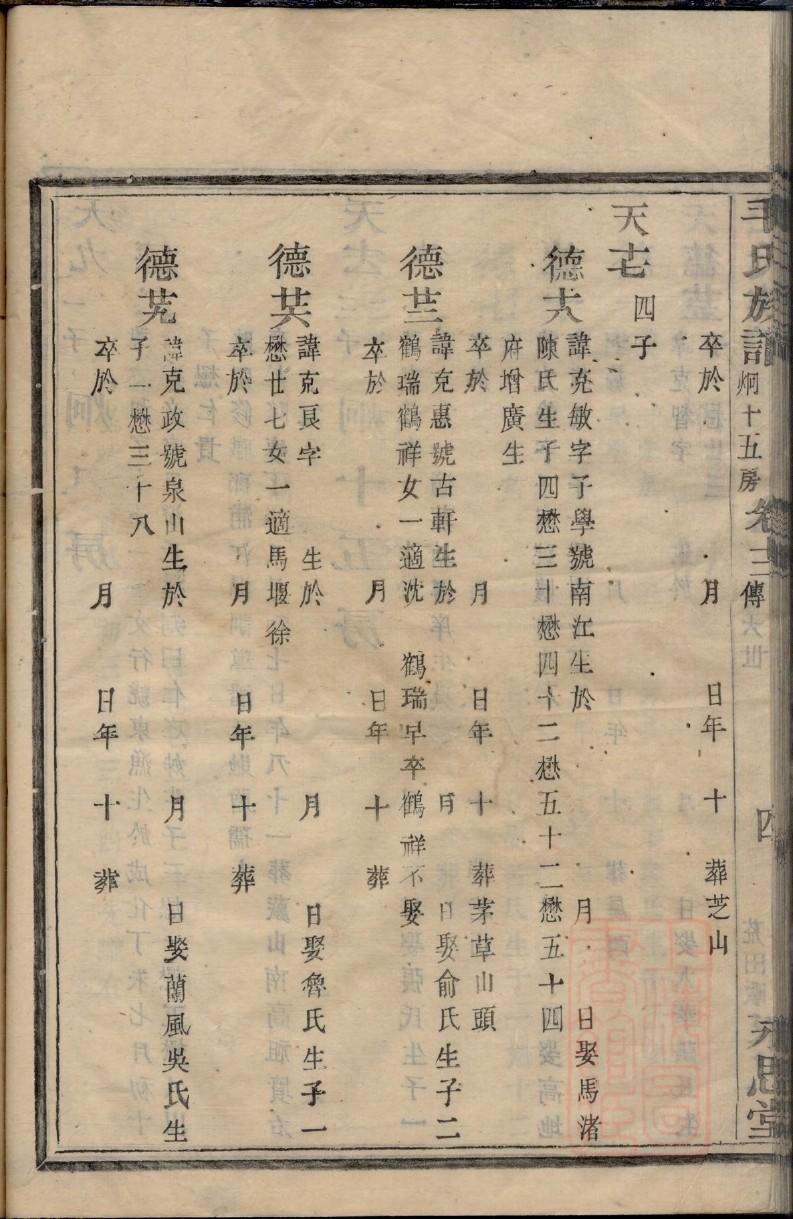 毛氏族譜 炯十五房 卷十三 傳 四 永思堂
卒於 月 日年 十 葬芝山
天 四子
德
諱克敏字子學號南江生於 月 日娶馬渚
陳氏生子四懋三十懋四十二懋五十二懋五十四
府增廣生
卒於 月 日年 十 葬茅草山頭
德
諱克惠號古軒生於 月 日娶俞氏生子二
鶴瑞鶴祥女一適沈 鶴瑞早卒鶴祥不娶
卒於 月 日年 十 葬
德
諱克良字 生於 月 日娶魯氏生子一
懋廿七女一適馬堰徐
卒於 月 日年 十 葬
德
諱克政號泉山生於 月 日娶蘭風吳氏生
子一懋三十八
卒於 月 日年 十 葬